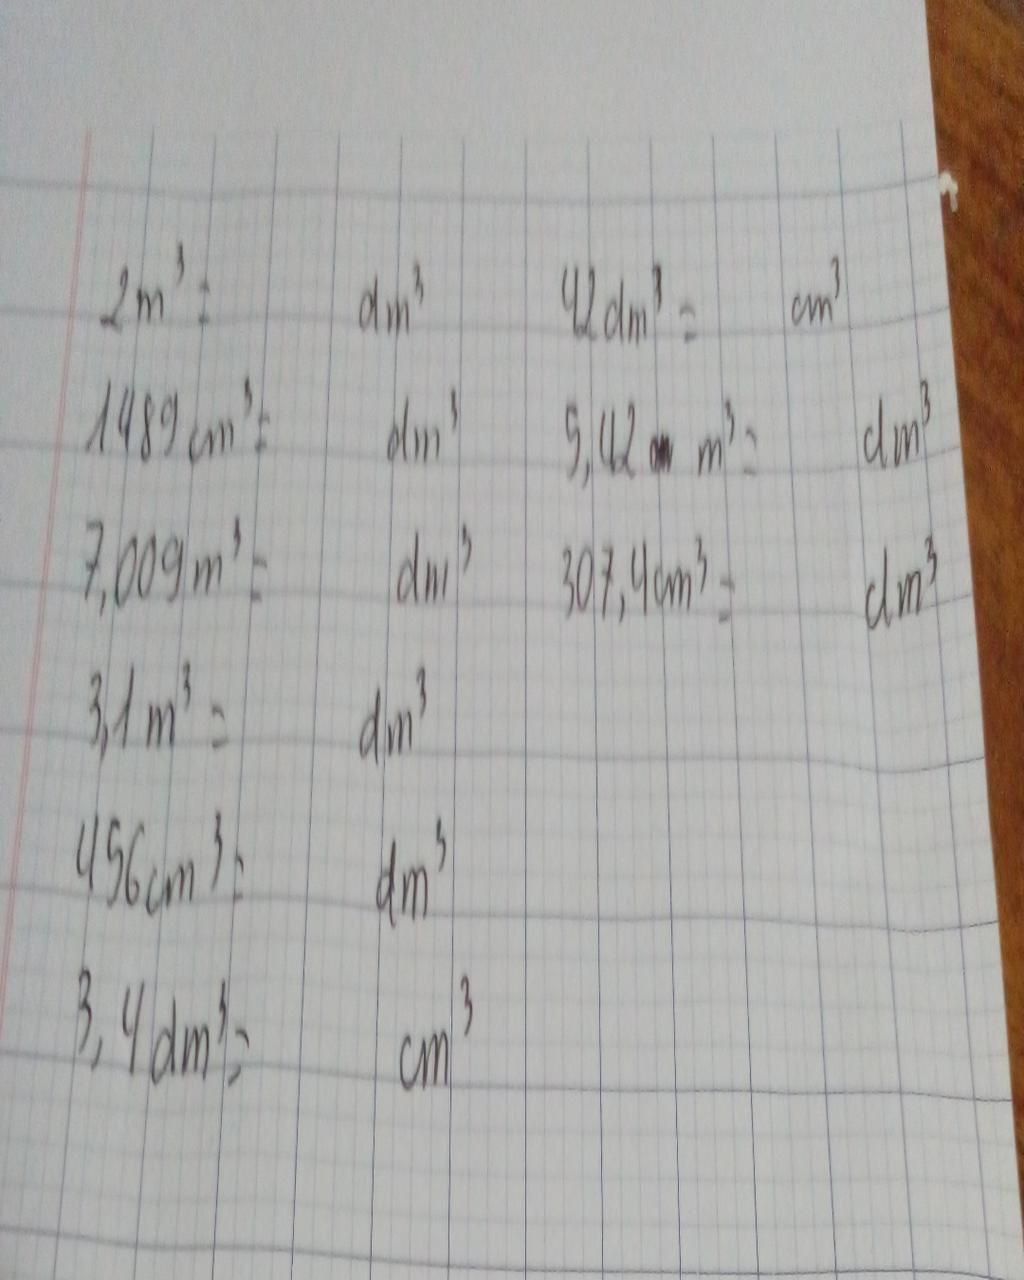 2m³ = dm³ 42dm³ = cm³
1489cm³ = dm³ 5,42 m³ = dm³
7,009m³ = dm³ 307,4cm³ = dm³
3,1m³ = dm³
456cm³ = dm³
3,4dm³ = cm³